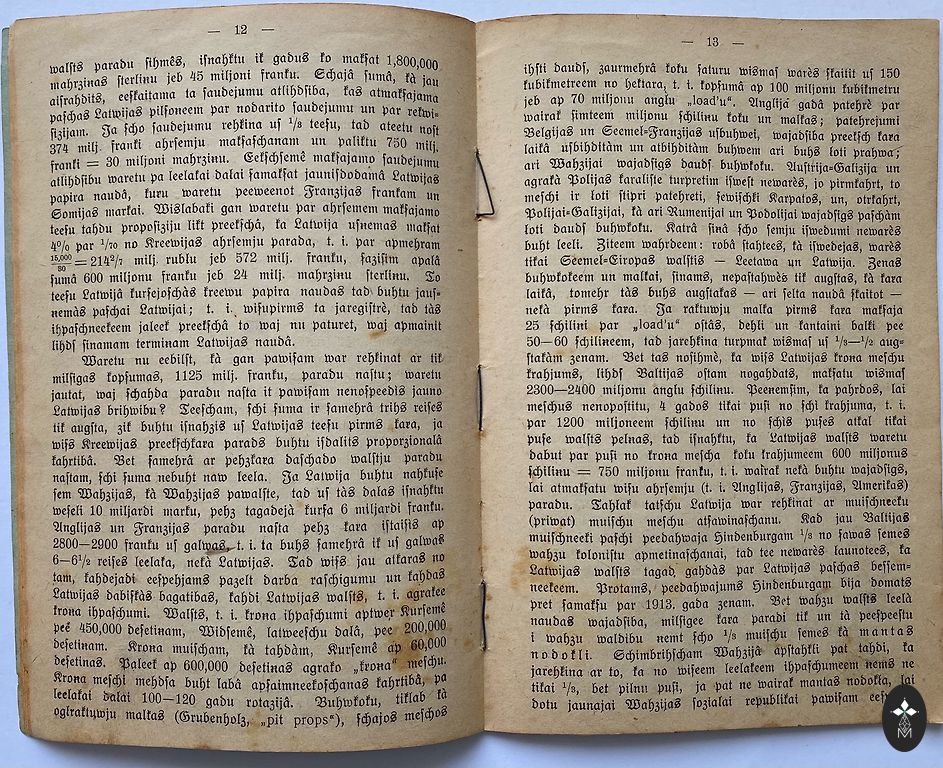 — 12 —
walſts paradu ſihmês, iſnahktu ik gadus ko makſat 1,800,000
mahrzinas ſterlinu jeb 45 miljoni franku. Schajâ ſumâ, kâ jau
aiſrahdits, eeſkaitama ta ſaudejumu atlihdſiba, kas atmakſajama
paſchas Latwijas pilſoneem par nodarito ſaudejumu un par rekwi-
ſizijam. Ja ſcho ſaudejumu rehkina uſ 1/3 teeſu, tad ateetu noſt
374 milj. franki ahrſemju makſaſchanam un paliktu 750 milj.
franki = 30 miljoni mahrzinu. Eekſchſemê makſajamo ſaudejumu
atlihdſibu waretu pa leelakai dalai ſamakſat jauniſdodamâ Latwijas
papira naudâ, kuru waretu peeweenot Franzijas frankam un
Somijas markai. Wiſlabaki gan waretu par ahrſemem makſajamo
teeſu tahdu propoſiziju likt preekſchâ, ka Latwija uſnemas makſat
4% par 1/70 no Kreewijas ahrſemju parada, t. i. par apmehram
15,000/80 = 214 2/7 milj. rublu jeb 572 milj. franku, ſaziſim apalâ
ſumâ 600 miljonu franku jeb 24 milj. mahrzinu ſterlinu. To
teeſu Latwijâ kurſejoſchàs kreewu papira naudas tad buhtu jauſ-
nemàs paſchai Latwijai; t. i. wiſupirms ta jaregiſtrê, tad tàs
ihpaſchneekeem jaleek preekſchâ to waj nu paturet, waj apmainit
lihdſ ſinamam terminam Latwijas naudâ.
Waretu nu eebilſt, kâ gan pawiſam war rehkinat ar tik
milſigas kopſumas, 1125 milj. franku, paradu naſtu; waretu
jautat, waj ſchahda paradu naſta it pawiſam nenoſpeedîs jauno
Latwijas brihwibu? Teeſcham, ſchi ſuma ir ſamehrâ trihs reiſes
tik augſta, zik buhtu iſnahzis uſ Latwijas teeſu pirms kara, ja
wiſs Kreewijas preekſchkara parads buhtu iſdalits proporzionalâ
kahrtibâ. Bet ſamehrâ ar pehzkara daſchado walſtju paradu
naſtam, ſchi ſuma nebuht naw leela. Ja Latwija buhtu nahkuſe
ſem Wahzijas, kâ Wahzijas pawalſte, tad uſ tàs dalas iſnaktu
weſeli 10 miljardi marku, pehz tagadejâ kurſa 6 miljardi franku.
Anglijas un Franzijas paradu naſta pehz kara iſtaiſîs ap
2800—2900 franku uſ galwas, t. i. ta buhs ſamehrâ ik uſ galwas
6—6 1/2 reiſes leelaka, nekâ Latwijas. Tad wiſs jau atkaras no
tam, kahdejadi eeſpehjams pazelt darba raſchigumu un kahdas
Latwijas dabiſkàs bagatibas, kahdi Latwijas walſts, t. i. agrakee
krona ihpaſchumi. Walſts, t. i. krona ihpaſchumi aptwer Kurſemê
pee 450,000 deſetinam, Widſemê, latweeſchu dalâ, pee 200,000
deſetinam. Krona muiſcham, kâ tahdàm, Kurſemê ap 60,000
deſetinas. Paleek ap 600,000 deſetinas agrako „krona" meſchu.
Krona meſchi mehdſa buht labâ apſaimneekoſchanas kahrtibâ, pa
leelakai dalai 100—120 gadu rotazijâ. Buhwkoku, tiklab kâ
oglraktuwju malkas (Grubenholz, „pit props"), ſchajos meſchos
— 13 —
ihſti daudſ, zaurmehrâ koku ſaturu wiſmaſ warês ſkaitit uſ 150
kubikmetreem no hektara, t. i. kopſumâ ap 100 miljonu kubikmetru
jeb ap 70 miljonu anglu „load'u". Anglijâ gadâ patehrê par
wairak ſimteem miljonu ſchilinu koku un malkas; patehrejumi
Belgijas un Seemel=Franzijas uſbuhwei, wajadſiba preekſch kara
laikâ uſbihditàm un atbihditàm buhwem ari buhs loti prahwa;
ari Wahzijai wajadſigs daudſ buhwkoku. Auſtrija=Galizija un
agrakâ Polijas karaliſte turpretim iſweſt newarês, jo pirmkahrt, to
meſchi ir loti ſtipri patehreti, ſewiſchki Karpatos, un, otrkahrt,
Polijai=Galizijai, kâ ari Rumenijai un Podolijai wajadſigs paſchàm
loti daudſ buhwkoku. Katrâ ſinâ ſcho ſemju iſwedumi newarês
buht leeli. Ziteem wahrdeem: robâ ſtahtees, kâ iſwedejas, warês
tikai Seemel=Eiropas walſtis — Leetawa un Latwija. Zenas
buhwkokeem un malkai, ſinams, nepaſtahwês tik augſtas, kâ kara
laikâ, tomehr tàs buhs augſtakas — ari ſelta naudâ ſkaitot —
nekâ pirms kara. Ja raktuwju malka pirms kara makſaja
25 ſchilini par „load'u" oſtâs, dehli un kantaini balki pee
50—60 ſchilinu, tad jarehkina turpmak wiſmaſ uſ 1/3—1/2 aug-
ſtakàm zenam. Bet tas noſihmê, ka wiſs Latwijas krona meſchu
krahjums, lihdſ Baltijas oſtam nogahdats, makſatu wiſmaſ
2300—2400 miljonu anglu ſchilinu. Peenemſim, ka pahrdos, lai
meſchus nenopoſtitu, 4 gados tikai puſi no ſchi krahjuma, t. i.
par 1200 miljoneem ſchilinu un no ſchis puſes atkal tikai
puſe walſts pelnas, tad iſnaktu, ka Latwijas walſts waretu
dabut par puſi no krona meſcha koku krahjumeem 600 miljonus
ſchilinu = 750 miljonu franku, t. i. wairak nekâ buhtu wajadſigs,
lai atmakſatu wiſu ahrſemju (t. i. Anglijas, Franzijas, Amerikas)
paradu. Tahlak tatſchu Latwija war rehkinat ar muiſchneeku
(priwat) muiſchu meſchu atſawinaſchanu. Kad jau Baltijas
muiſchneeki paſchi peedahwaja Hindenburgam 1/3 no ſawas ſemes
wahzu koloniſtu apmetinaſchanai, tad tee newarês launotees, ka
Latwijas walſts tagad, gahdàs par Latwijas paſchas beſſem-
neekeem. Protams, peedahwajums Hindenburgam bija domats
pret ſamakſu par 1913. gada zenam. Bet wahzu walſts leelâ
naudas wajadſiba, milſigee kara paradi tik un tà peeſpeeſtu
i wahzu waldibu nemt ſcho 1/3 muiſchu ſemes kâ mantas
nodokli. Schimbrihſcham Wahzijâ apſtahkli pat tahdi, ka
jarehkina ar to, ka no wiſeem leelakeem ihpaſchumeem nems ne
tikai 1/3, bet pilnu puſi, ja pat ne wairak mantas nodokla, lai
dotu jaunajai Wahzijas ſozialai republikai pawiſam
M